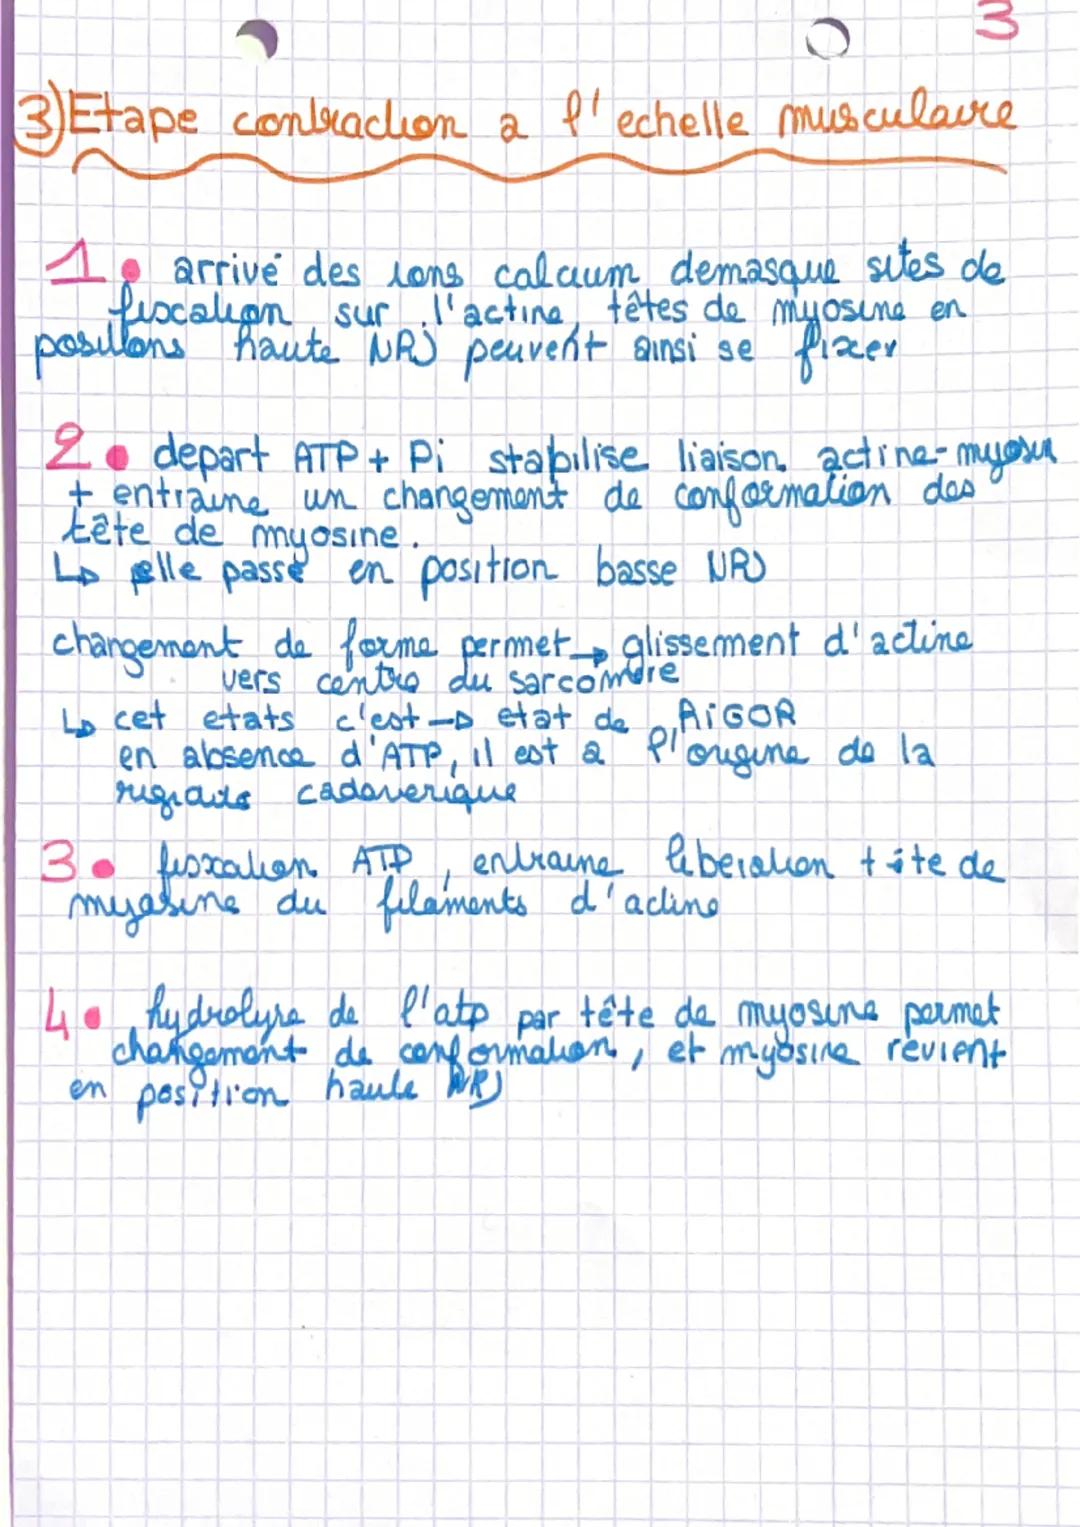 3
3) Etape contraction a l'echelle musculaire
1. arrivé des ions calcium demasque sites de
fixcation sur l'actine, têtes de myosine en
positions haute NRJ peuvent ainsi se fixer
2. depart ATP + Pi stabilise liaison actine-myosin
+ entraine un changement de conformation des
tête de myosine.
↳ elle passe en position basse NRJ
changement de forme permet → glissement d'actine
vers centre du sarcomère
↳ cet etats c'est → etat de RiGOR
en absence d'ATP, il est a l'origine de la
cadaverique
3. fixation ATP, entraine liberation tête de
myosine du filaments d'actine
4. hydrolyse de l'atp par tête de myosine permet
changement de conformation, et myosine revient
en position haute NRJ